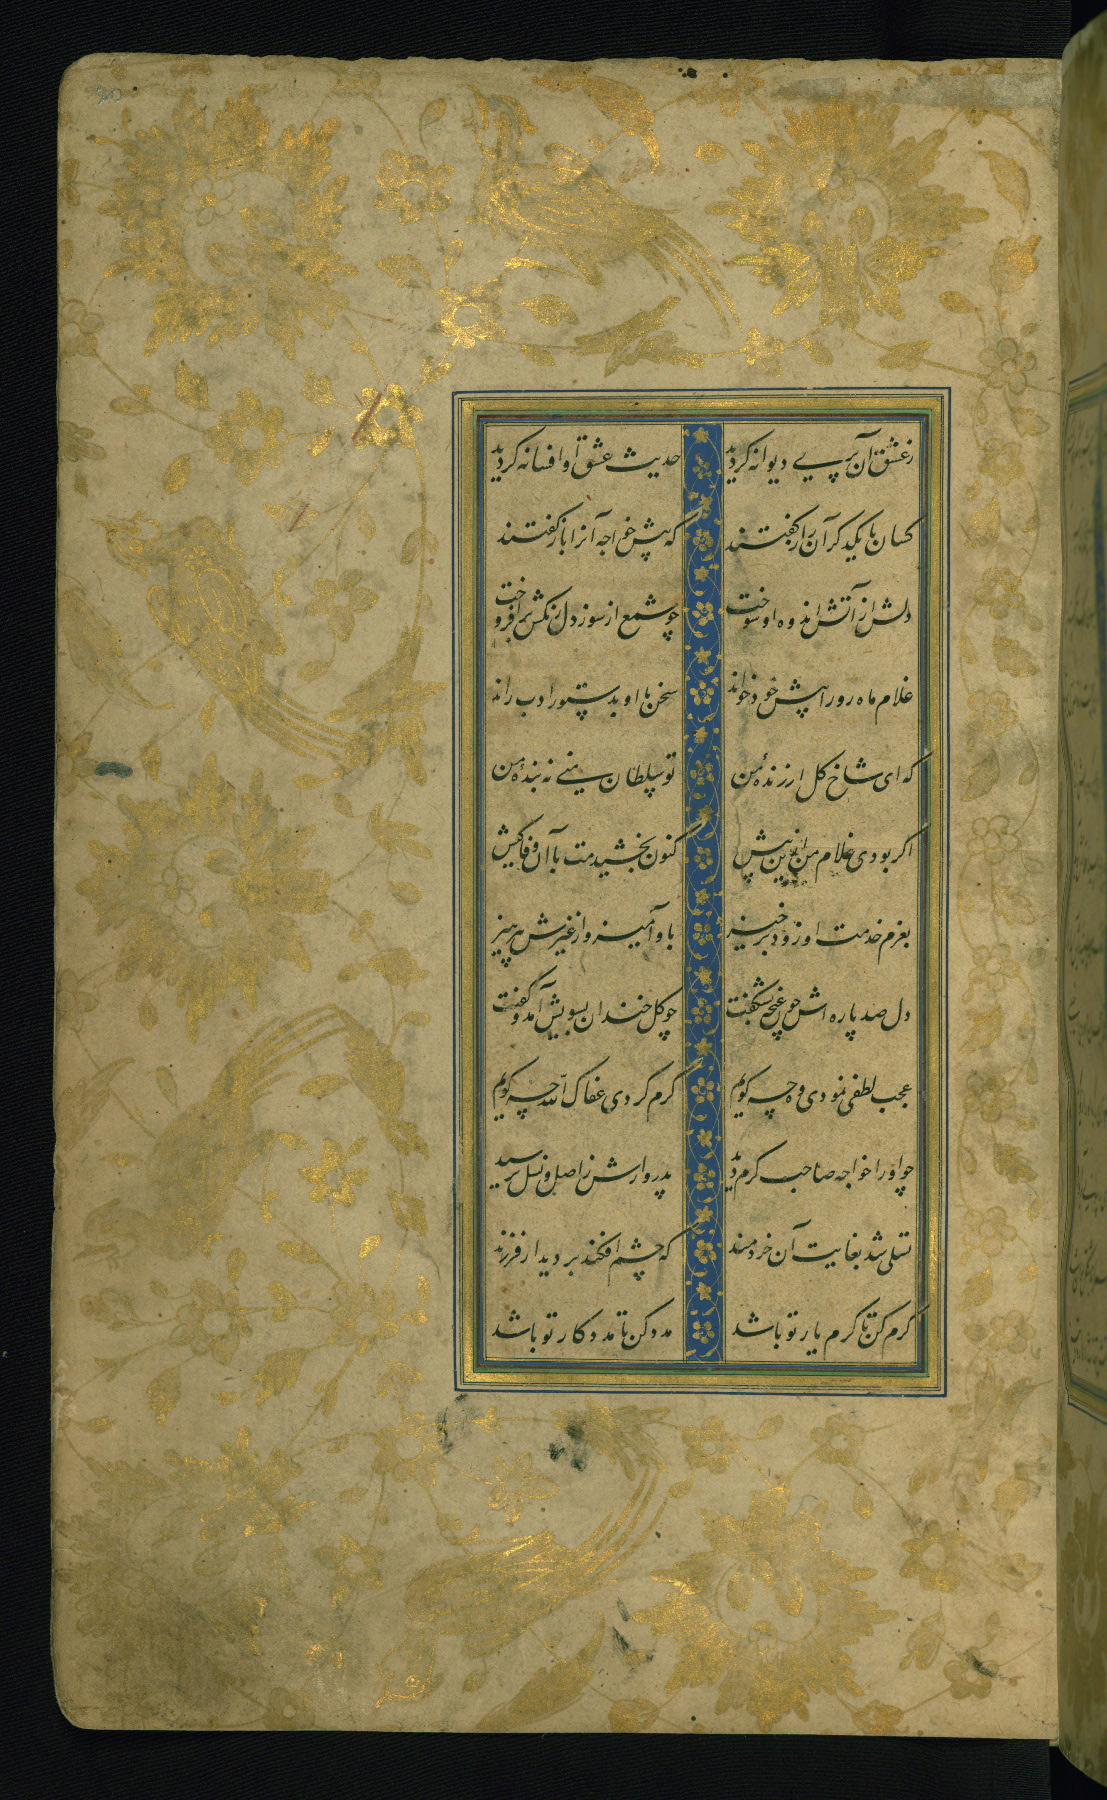 زعشق آن پری دیوانه کردید حدیث عشق او افسانه کردید
کسان با یکدکر آن راز کفتند که پیش خواجه آنرا باز کفتند
دلش از آتش اندوه او سوخت چو شمع از سوز دل افروخت
غلام ماه رو را پیش خود خواند سخن با او بدستور ادب راند
که ای شاخ کل ارزندهٔ من تو سلطان منی نه بندهٔ من
اکر بودی غلام من ازین پیش کنون بخشیدمت با آن وفاکیش
بعزم خدمت او زود برخیز با و آمیز و از غیرش بپرهیز
دل صد پاره اش چون غنچه بشکفت چو کل خندان بسویش آمد و کفت
عجب لطفی نمودی وه چه کویم کرم کردی عفاک الله چه کویم
چو او را خواجه صاحب کرم دید پدر وارش ز اصل و نسل پرسید
تسلی شد بغایت آن خردمند که چشم افکند بر دیدار فرزند
کرم کن تا کرم یار تو باشد مدد کن تا مددکار تو باشد